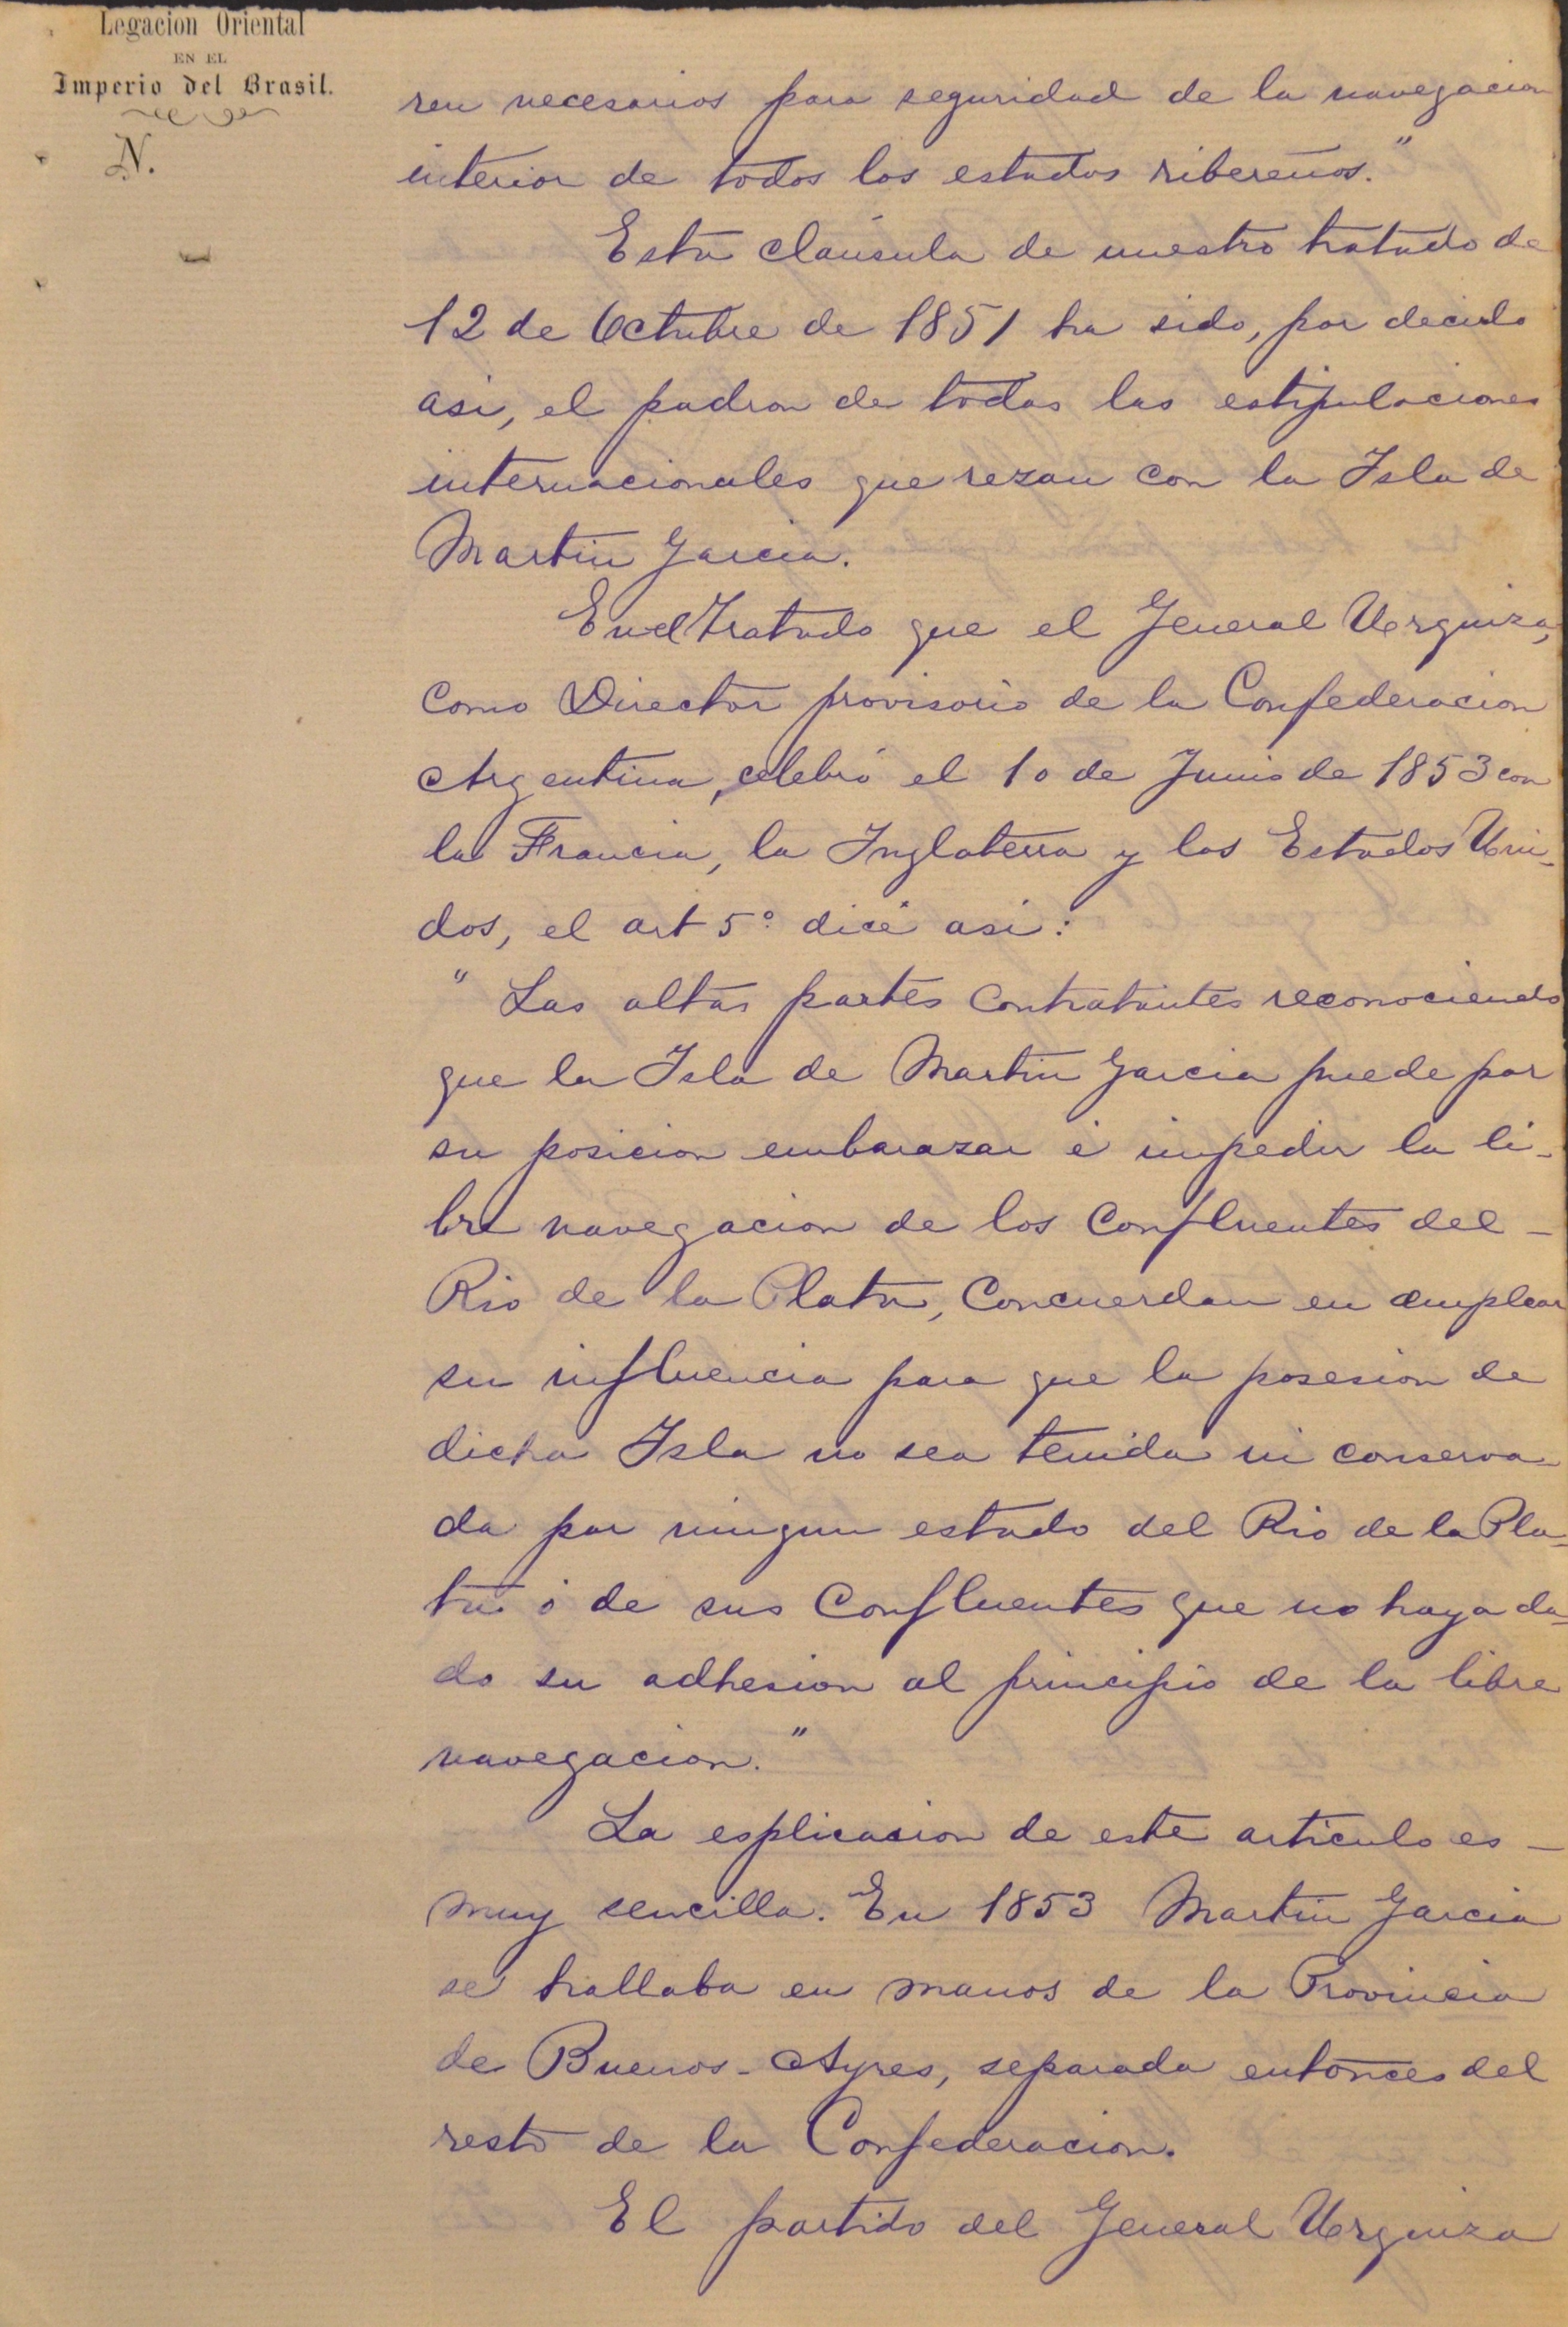 Legacion Oriental
EN EL
Imperio del Brasil.
N.
ren necesarios para seguridad de la navegacion
interior de todos los estados ribereños."
Esta cláusula de nuestro tratado de
12 de Octubre de 1851 ha sido, por decirlo
asi, el padron de todas las estipulaciones
internacionales que rezan con la Isla de
Martin Garcia.
En el Tratado que el General Urquiza,
como Director provisorio de la Confederacion
Argentina, celebró el 10 de Junio de 1853 con
la Francia, la Inglaterra y los Estados Uni-
dos, el art 5º dice asi:
" Las altas partes contratantes reconociendo
que la Isla de Martin Garcia puede por
su posicion embarazar é impedir la li-
bre navegacion de los confluentes del -
Rio de la Plata, concuerdan en emplear
su influencia para que la posesion de
dicha Isla no sea tenida ni conserva-
da por ningun estado del Rio de la Pla-
ta ó de sus confluentes que no haya da-
do su adhesion al principio de la libre
navegacion."
La esplicacion de este articulo es -
muy sencilla. En 1853 Martin Garcia
se hallaba en manos de la Provincia
de Buenos-Ayres, separada entonces del
resto de la Confederacion.
El partido del General Urquiza